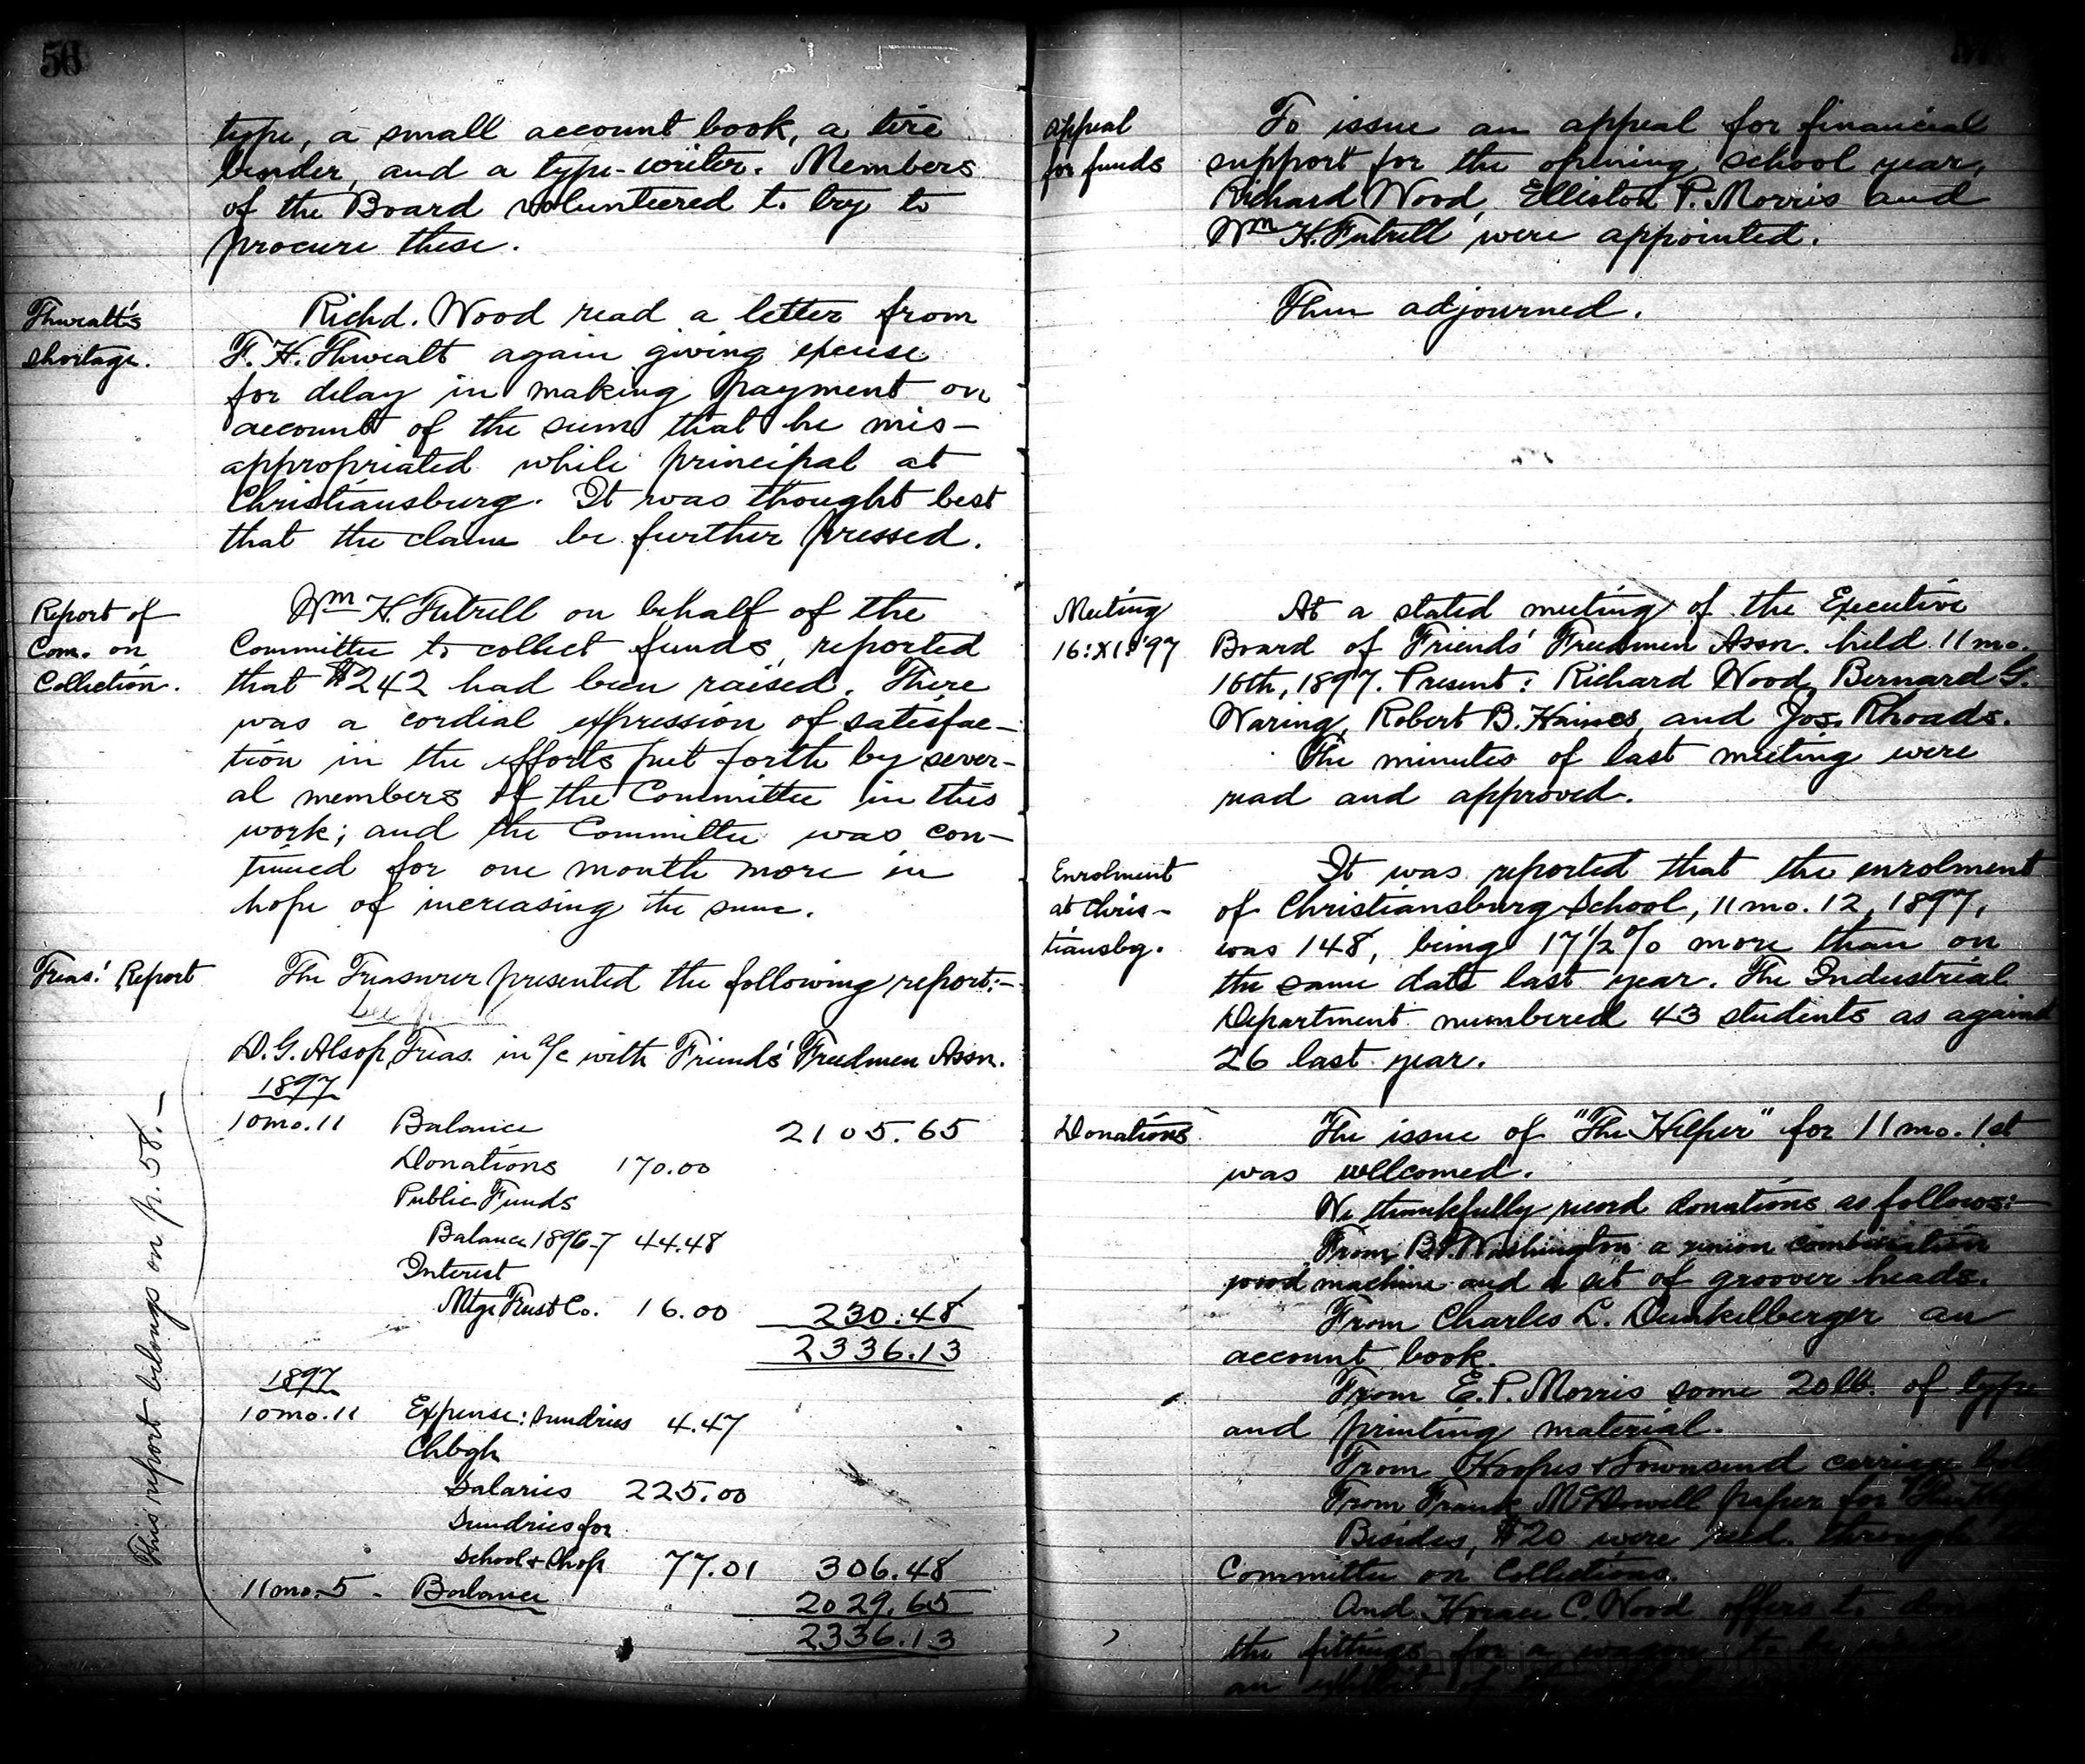 56
type, a small account book, a tire
bender, and a type-writer. Members
of the Board volunteered to try to
procure these.
Thweatt's
shortage.
Richd. Wood read a letter from
F. H. Thweatt again giving excuse
for delay in making payment on
account of the sum that he mis-
appropriated while principal at
Christiansburg. It was thought best
that the claim be further pressed.
Report of
Com. on
Collection.
Wm H. Futrell on behalf of the
Committee to collect funds, reported
that $242 had been raised. There
was a cordial expression of satisfac-
tion in the efforts put forth by sever-
al members of the Committee in this
work; and the Committee was con-
tinued for one month more in
hope of increasing the sum.
Treas.' Report
The Treasurer presented the following report:-
D. G. Alsop, Treas. in a/c with Friends' Freedmen Assn.
1897
10mo. 11 Balance 2105.65
Donations 170.00
Public Funds
Balance 1896-7 44.48
Interest
Mtge Trust Co. 16.00 230.48
2336.13
1897
10mo. 11 Expense: Sundries 4.47
Chbgh
Salaries 225.00
Sundries for
School & Shop 77.01 306.48
11mo. 5 - Balance 2029.65
2336.13
This report belongs on p. 58.-
57
Appeal
for funds
To issue an appeal for financial
support for the opening school year,
Richard Wood, Elliston P. Morris and
Wm H. Futrell were appointed.
Then adjourned.
Meeting
16:XI:'97
At a stated meeting of the Executive
Board of Friends' Freedmen Assn. held 11mo.
16th, 1897. Present: Richard Wood, Bernard G.
Waring, Robert B. Haines, and Jos. Rhoads.
The minutes of last meeting were
read and approved.
Enrolment
at Chris-
tiansbg.
It was reported that the enrolment
of Christiansburg School, 11mo. 12, 1897,
was 148, being 17 1/2 % more than on
the same date last year. The Industrial
Department numbered 43 students as against
26 last year.
Donations
The issue of "The Helper" for 11mo. 1st
was wellcomed.
We thankfully record donations as follows:-
From B. T. Washington a union combination
wood machine and a set of groover heads.
From Charles L. Dunkelberger an
account book.
From E. P. Morris some 20 lb. of type
and printing material.
From Hoopes & Townsend carriage
From Frank McDowell paper for "The
Besides, $20 were recd. through
Committee on Collections.
And Horace C. Wood offers to
the fittings for a wagon to be
an exhibit of